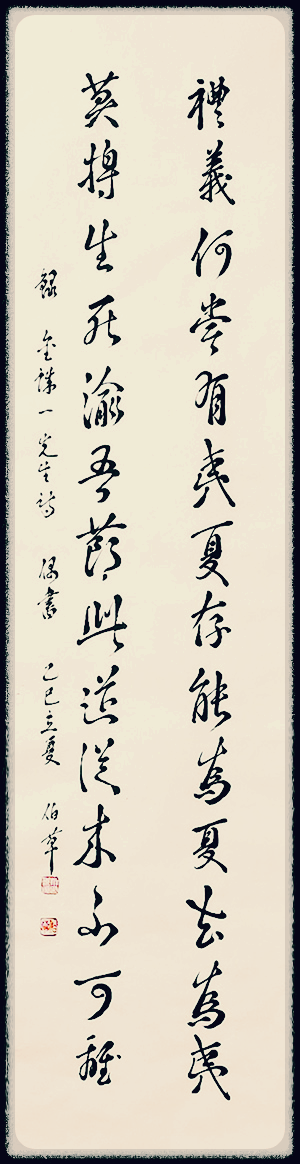 禮義何嘗有夷夏存能為夏去為夷
莫將生死渝吾節此道從來不可離
錄 金一先生詩 偶書 乙巳立夏 伯草